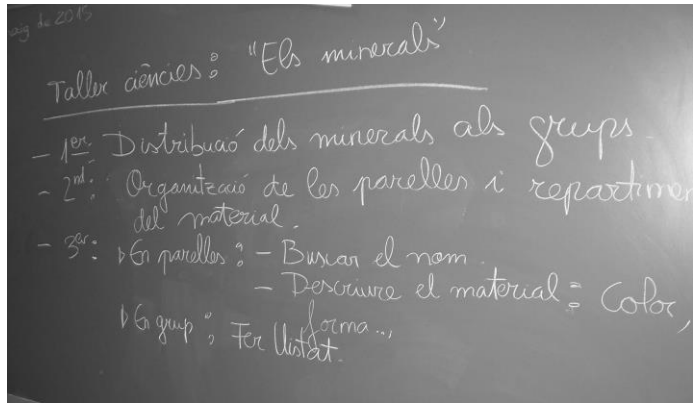 maig de 2015
Taller ciències: "Els minerals"
- 1er: Distribució dels minerals als grups.
- 2nd: Organització de les parelles i repartimen
del material.
- 3er: ▷ En parelles: - Buscar el nom.
- Descriure el material: Color,
forma...,
▷ En grup: Fer llistat.